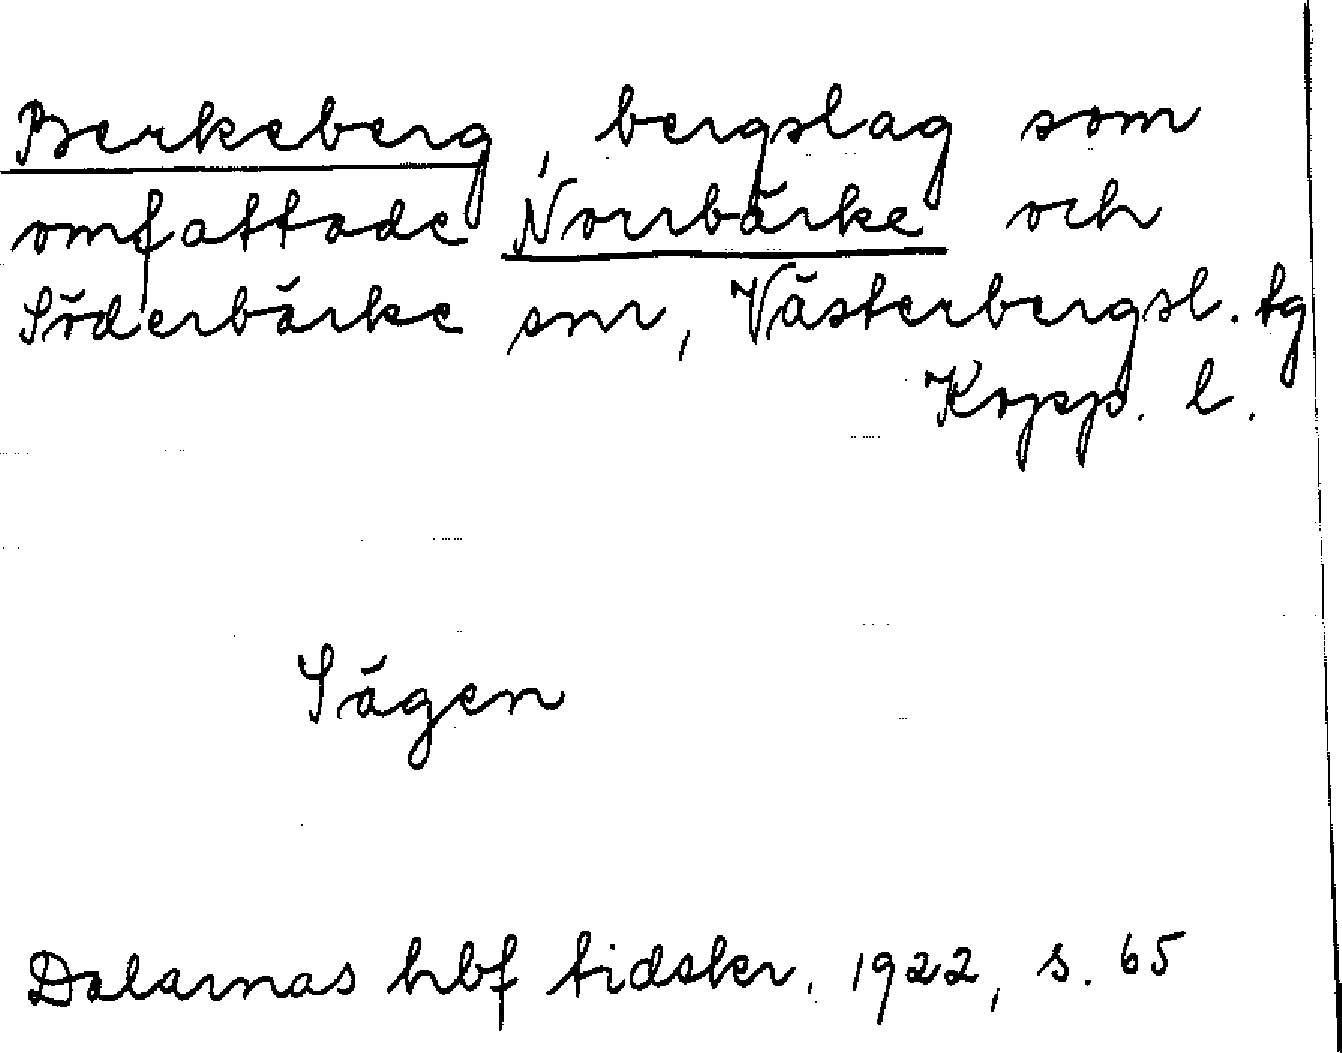 Berkeberg, bergslag som
omfattade Norrbärke och
Söderbärke snr, Västerbergsl. tg
Kopp. l.
Sägen
Dalarnas hbf tidskr. 1922, s. 65